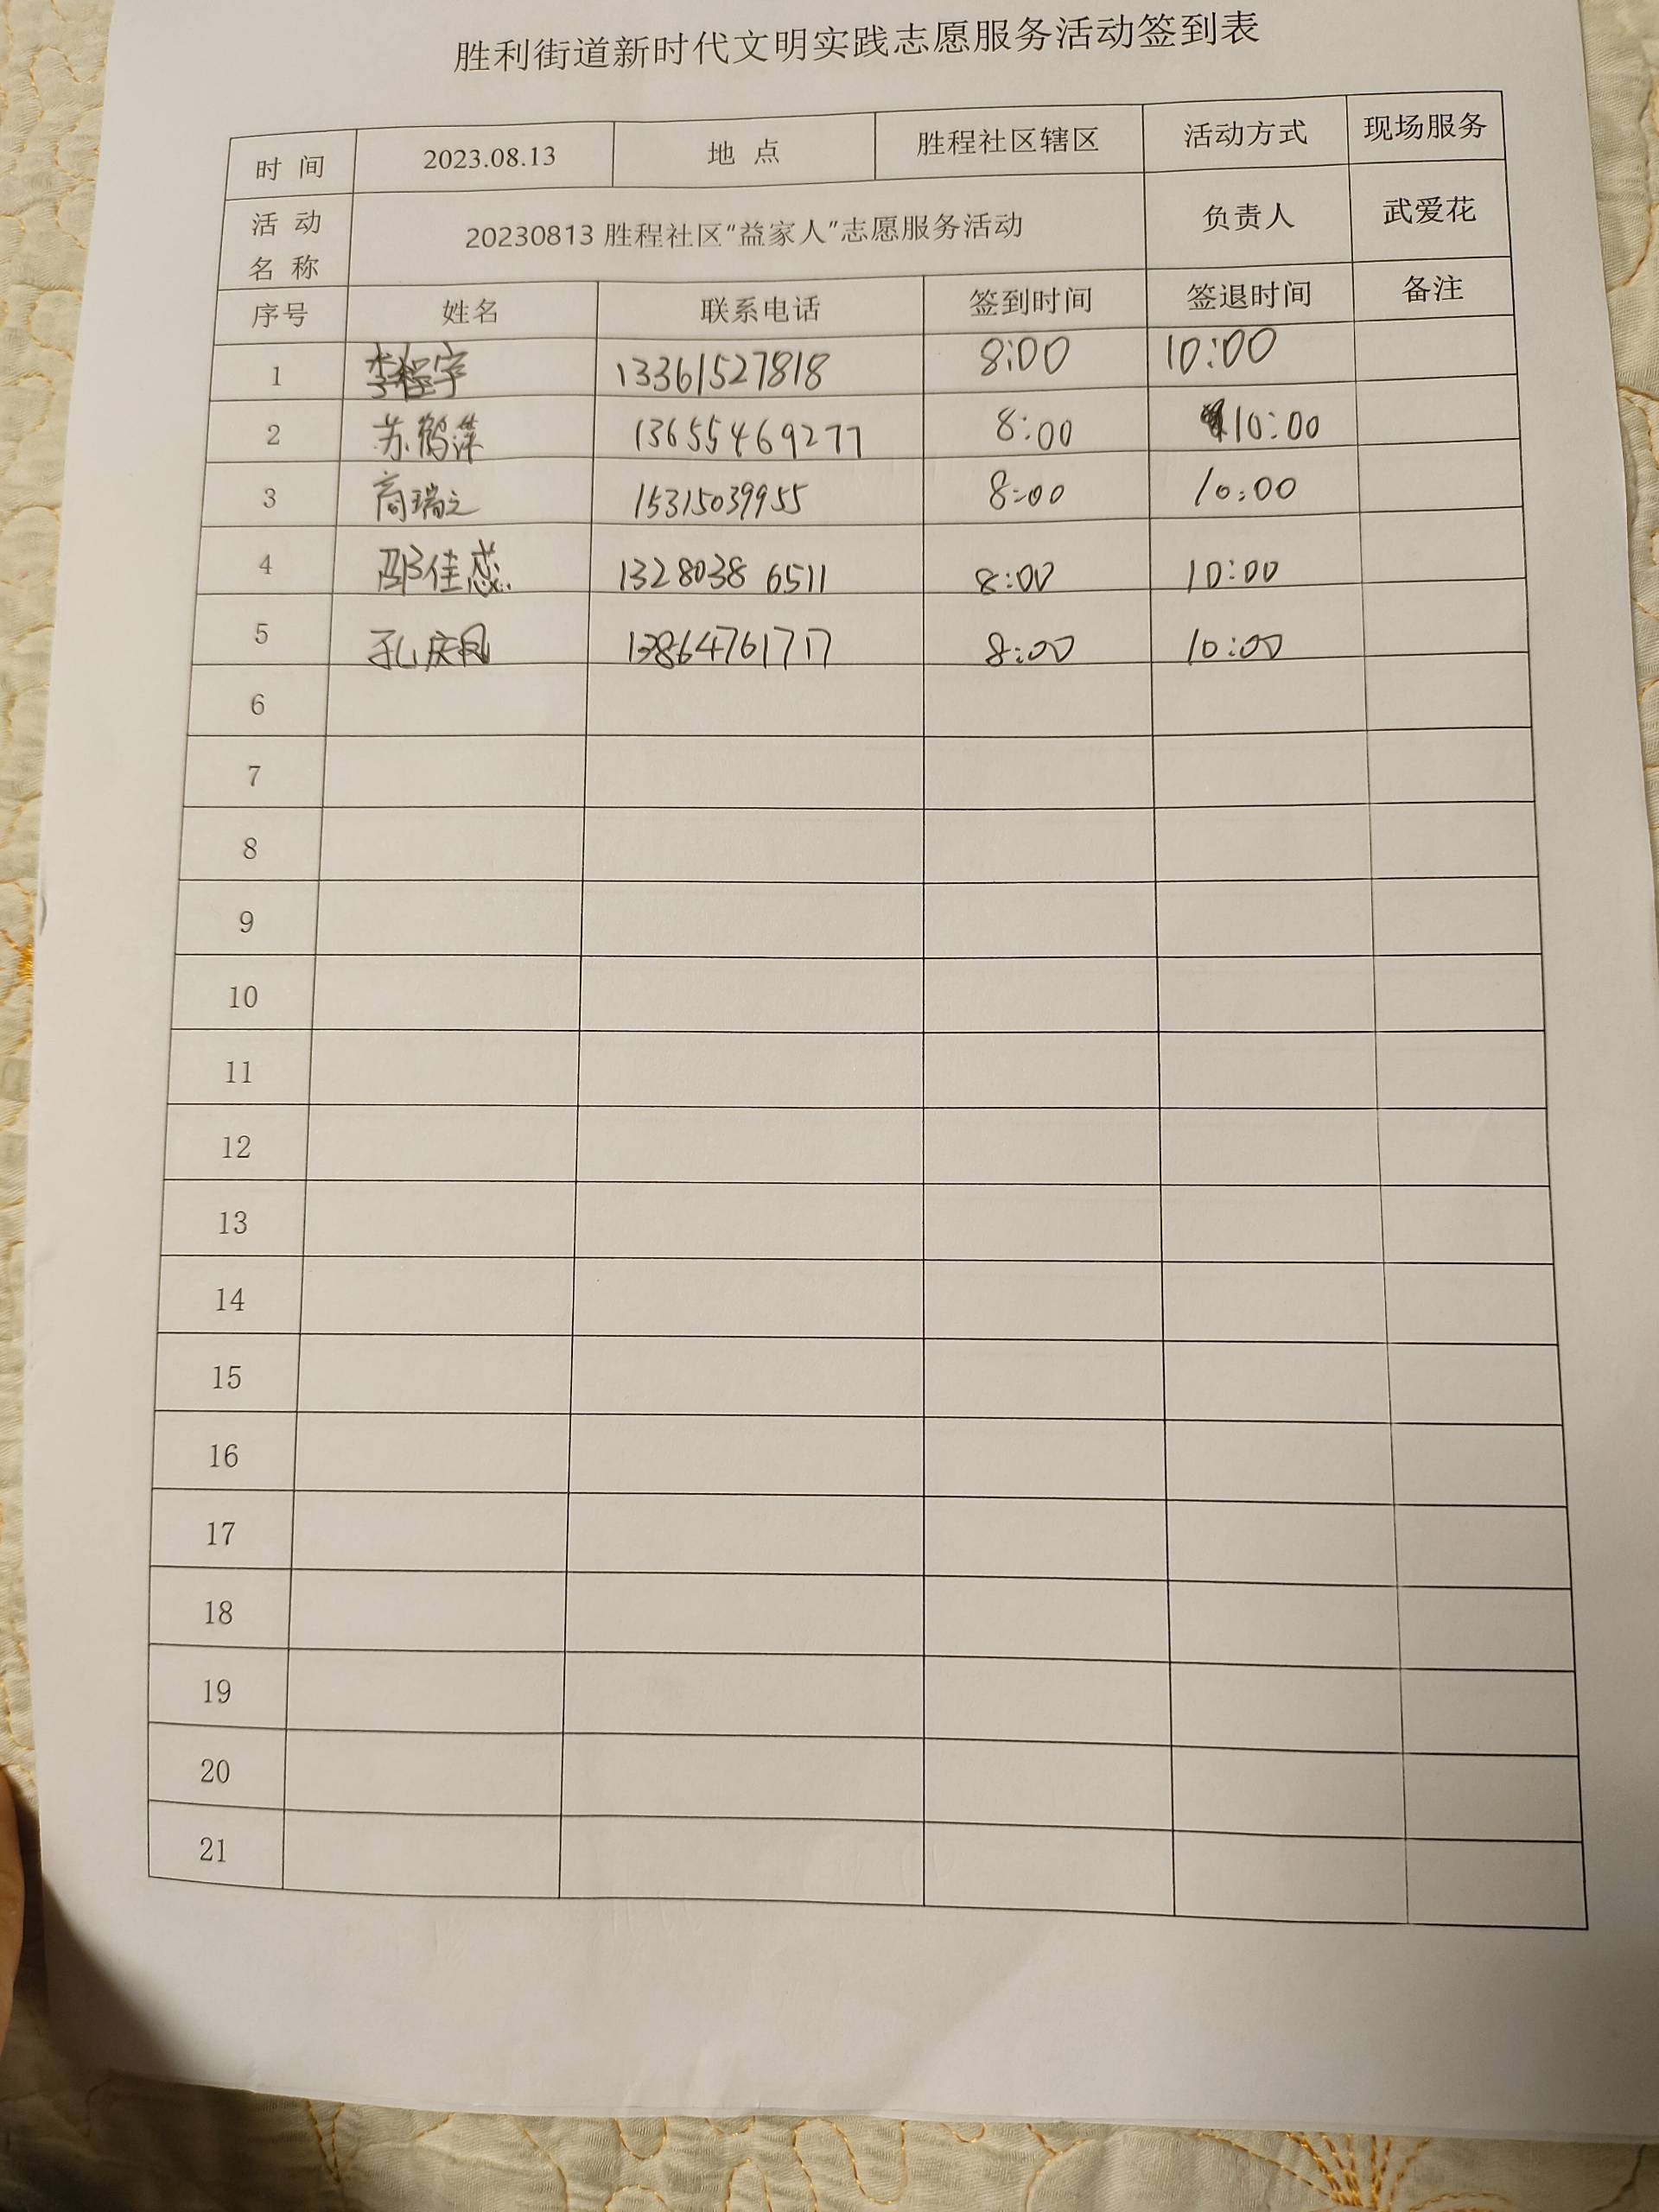 胜利街道新时代文明实践志愿服务活动签到表
时 间 2023.08.13 地 点 胜程社区辖区 活动方式 现场服务
活 动 名 称 20230813胜程社区“益家人”志愿服务活动 负责人 武爱花
序号 姓名 联系电话 签到时间 签退时间 备注
1 李程宇 13361527818 8:00 10:00
2 苏鹤 13655469277 8:00 10:00
3 商瑞之 15315039955 8:00 10:00
4 邵佳 13280386511 8:00 10:00
5 孔庆凤 13864761717 8:00 10:00
6
7
8
9
10
11
12
13
14
15
16
17
18
19
20
21